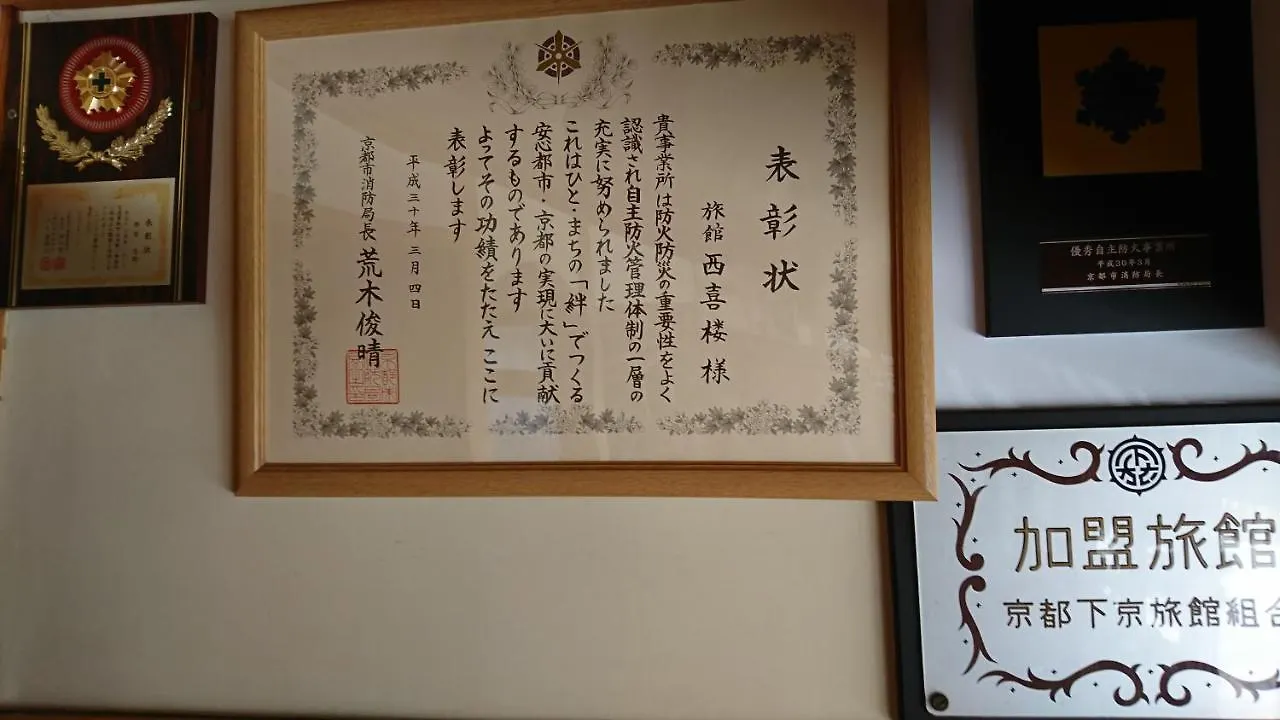 表彰状
旅館 西喜楼 様
貴事業所は防火防災の重要性をよく
認識され自主防火管理体制の一層の
充実に努められました
これはひと・まちの「絆」でつくる
安心都市・京都の実現に大いに貢献
するものであります
よってその功績をたたえここに
表彰します
平成三十年三月四日
京都市消防局長 荒木俊晴
表彰状
優秀自主防火事業所
平成30年3月
京都市消防局長
加盟旅館
京都下京旅館組合